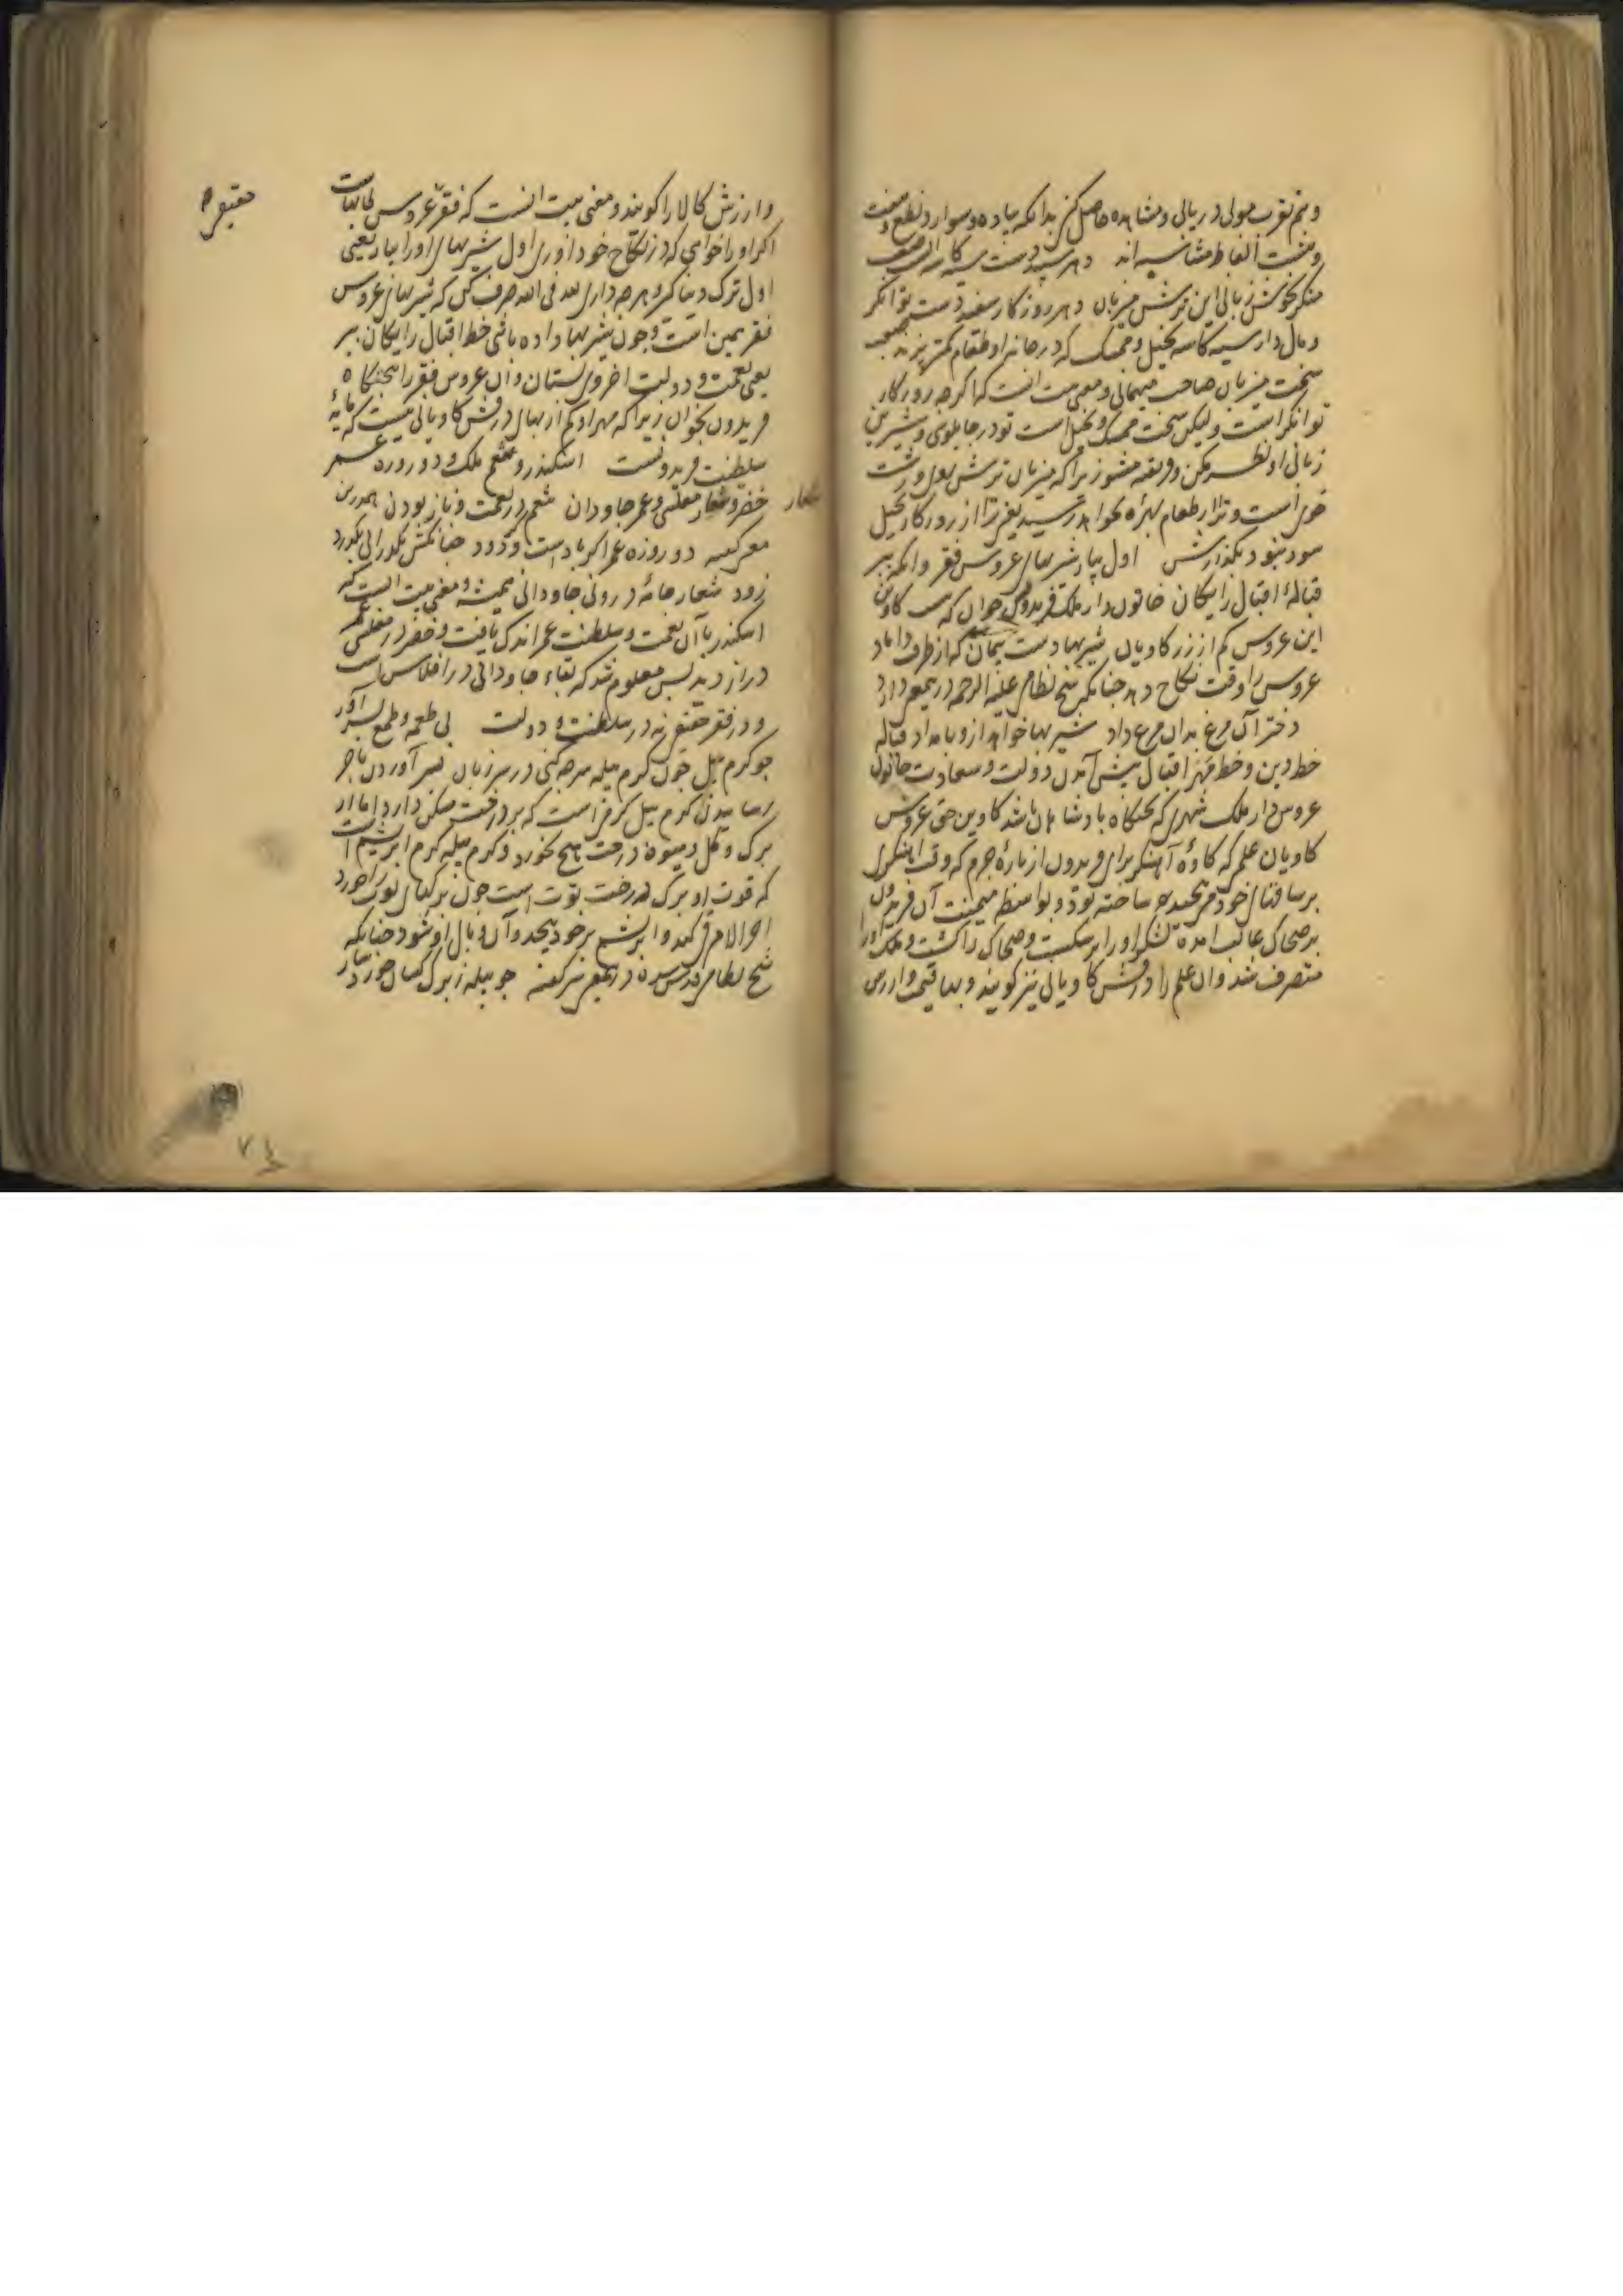 وبنم تقرب مولی دریابی ومشاهده حاصل کنی بدانکه پیاده وسوار ونطع وهفت
وهشت الفاظ متناسبه اند دهر سپید دست سیه کاسه است صعب
منکر بخوش زبانی این ترش میزبان دهر روزکار سفید دست توانکر
ومال دار سیه کاسه بخیل وممسک که در خانه او طعام کمتر پزند صعب
سخت میزبان صاحب مهمانی ومعنی بیت انست که اکرچه روزکار
توانکر است ولیکن سخت ممسک وبخیل است تو در چاپلوسی وشیرین
زبانی او نظر مکن وفریفته مشو زیراکه میزبان ترش روی وزشت
خوی است وترا از طعام بهره نخواهد رسید یعنی ترا از روزکار بخیل
سود نبود بکذارش اول بیار شیربهای عروس فقر وانکه ببر
قباله اقبال رایکان خاتون دار ملک فریدونش خوان که هست کاوین
این عروس کم از زر کاویان شیربها دست پیمان که از طرف داماد
عروس را وقت نکاح دهد چنانکه شیخ نظامی علیه الرحمه درینمعنی دارد
دختر آن مرغ بدان مرغ داد شیربها خواهد ازو بامداد قباله
خط دین وخط مهر اقبال پیش آمدن دولت وسعادت خاتون
عروس دار ملک شهری که تختکاه پادشاهان باشد کاوین حق عروس
کاویان علم که کاوه آهنکر برای فریدون از پاره چرم که وقت آهنکری
بر ساقهای خود می پیچید ساخته بود وبواسطه میمنت آن فریدون
بر ضحاک غالب آمده لشکر او را بشکست وضحاک را کشت وملک او را
متصرف شد وآن علم را درفش کاویانی نیز کویند وبها قیمت وارزش
وارزش کالا را کویند ومعنی بیت انست که فقر عروس
اکر او را خواهی که در نکاح خود آوری اول شیربهای او را بیار یعنی
اول ترک دنیا کیر وهرچه داری لله فی الله صرف کن که شیربهای عروس
فقر همین است وچون شیربها داده باشی خط اقبال رایکان ببر
یعنی نعمت ودولت اخروی بستان وآن عروس فقر را تختکاه
فریدون بخوان زیراکه مهر او کم از بهای درفش کاویانی نیست که مایه
سلطنت فریدونست اسکندر وتنعم ملک ودو روزه عمر
خضر وشعار مفلسی وعمر جاودان تنعم در نعمت وناز بودن همدرین
معنی کفته دو روزه عمر اکر باد است وکر دود چنانکش بکذرانی بکذرد
زود شعار جامه درونی جاودانی همیشه ومعنی بیت انست که
اسکندر با آن نعمت وسلطنت عمر اندک یافت وخضر در مفلسی عمر
دراز دید پس معلوم شد که بقاء جاودانی در افلاس است
ودر فقر حقیقی نه در سلطنت ودولت بی طعمه وطمع بسر آور
چو کرم پیل چون کرم پیله سر چه کنی در سر زبان بسر آوردن باخر
رسانیدن کرم پیل کرمی است که بر درخت مسکن دارد اما از
برک وکل ومیوه درخت هیچ نخورد وکرم پیله کرم ابریشم است
که قوت او برک درخت توت است چون برکهای توت را خورد
اخر الامر قی کند وابریشم بر خود پیچد وآن وبال او شود چنانکه
شیخ نظامی قدس سره درینمعنی نیز کفته چو پیله ز برک کسان خورد
شعار